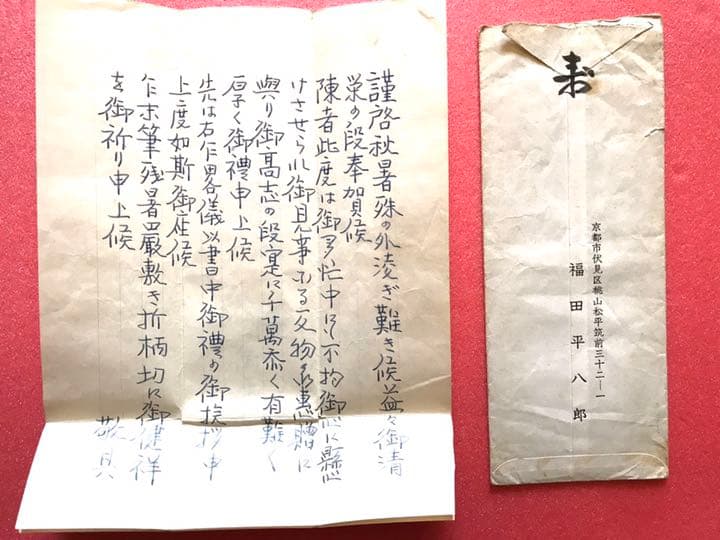 謹啓秋暑殊の外凌ぎ難き候益々御清
栄の段奉賀候
陳者此度は御多忙中にも不拘御心に懸
けさせられ御見事なる反物御恵贈に
與り御高志の段寔に千萬忝く有難く
厚く御禮申上候
先は右乍畧儀以書中御禮の御挨拶申
上度如斯御座候
乍末筆残暑厳敷き折柄切に御健祥
を御祈り申上候
敬具
寿
京都市伏見区桃山松平筑前三十二―一
福田平八郎